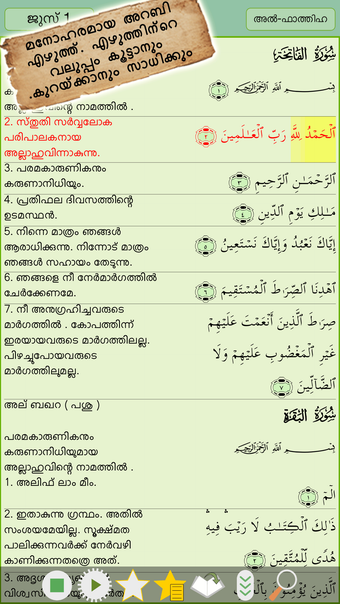 ജുസ് 1
അൽ-ഫാത്തിഹ
മനോഹരമായ അറബി
എഴുത്ത്. എഴുത്തിന്റെ
വലുപ്പം കൂട്ടാനും
.കുറയ്ക്കാനും സാധിക്കും
سُورَةُ الفَاتِحَةِ
بِسْمِ ٱللَّهِ ٱلرَّحْمَـٰنِ ٱلرَّحِيمِ ١
അല്ലാഹുവിന്റെ നാമത്തിൽ .
2. സ്തുതി സർവ്വലോക
പരിപാലകനായ
അല്ലാഹുവിന്നാകുന്നു.
ٱلْحَمْدُ لِلَّهِ رَبِّ ٱلْعَـٰلَمِينَ ٢
3. പരമകാരുണികനും
കരുണാനിധിയും.
ٱلرَّحْمَـٰنِ ٱلرَّحِيمِ ٣
4. പ്രതിഫല ദിവസത്തിന്റെ
ഉടമസ്ഥൻ.
مَـٰلِكِ يَوْمِ ٱلدِّينِ ٤
5. നിന്നെ മാത്രം ഞങ്ങൾ
ആരാധിക്കുന്നു. നിന്നോട് മാത്രം
ഞങ്ങൾ സഹായം തേടുന്നു.
إِيَّاكَ نَعْبُدُ وَإِيَّاكَ نَسْتَعِينُ ٥
6. ഞങ്ങളെ നീ നേർമാർഗത്തിൽ
ചേർക്കേണമേ.
ٱهْدِنَا ٱلصِّرَٰطَ ٱلْمُسْتَقِيمَ ٦
7. നീ അനുഗ്രഹിച്ചവരുടെ
മാർഗത്തിൽ . കോപത്തിന്ന്
ഇരയായവരുടെ മാർഗത്തിലല്ല.
പിഴച്ചുപോയവരുടെ
മാർഗത്തിലുമല്ല.
صِرَٰطَ ٱلَّذِينَ أَنْعَمْتَ عَلَيْهِمْ
غَيْرِ ٱلْمَغْضُوبِ عَلَيْهِمْ وَلَا
ٱلضَّآلِّينَ ٧
അല് ബഖറ ( പശു )
سُورَةُ البَقَرَةِ
പരമകാരുണികനും
കരുണാനിധിയുമായ
അല്ലാഹുവിന്റെ നാമത്തിൽ .
بِسْمِ ٱللَّهِ ٱلرَّحْمَـٰنِ ٱلرَّحِيمِ
1. അലിഫ് ലാം മീം.
الٓمٓ ١
2. ഇതാകുന്നു ഗ്രന്ഥം. അതിൽ
സംശയമേയില്ല. സൂക്ഷ്മത
പാലിക്കുന്നവർക്ക് നേർവഴി
കാണിക്കുന്നതത്രെ അത്.
ذَٰلِكَ ٱلْكِتَـٰبُ لَا رَيْبَ ۛ فِيهِ ۛ
هُدًى لِّلْمُتَّقِينَ ٢